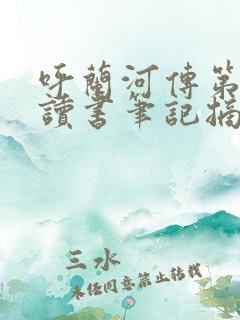 呼蘭河傳第
讀書筆記摘
三水
未經同意禁止轉載